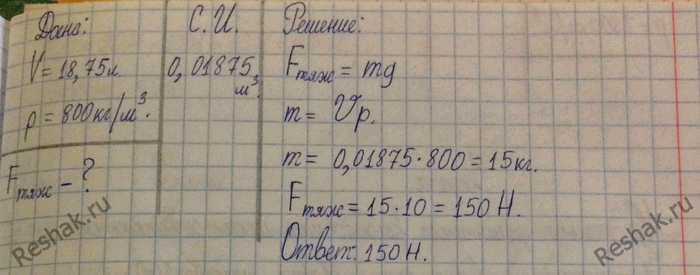 Дано:
V = 18,75л
ρ = 800кг/м³.
Fтяж - ?
С.И.
0,01875
м³.
Решение:
Fтяж = mg
m = Vρ.
m = 0,01875·800 = 15кг.
Fтяж = 15·10 = 150 Н.
Ответ: 150 Н.
Reshak.ru
Reshak.ru